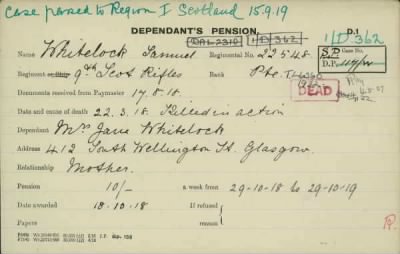 Case passed to Region I Scotland 15.9.19
DEPENDANT'S PENSION.
D.1
1/D/362
Name Whitelock Samuel Regimental No. 22548
S.D. Case No.
Regiment 9th Scot Rifles Rank Pte.
Documents received from Paymaster 17.8.18
DEAD
Date and cause of death 22.3.18. Killed in action
Dependant Mrs Jane Whitelock
Address 412 South Wellington St. Glasgow.
Relationship Mother.
Pension 10/- a week from 29-10-18 to 29-10-19
Date awarded 18-10-18 If refused
Papers reason
R.